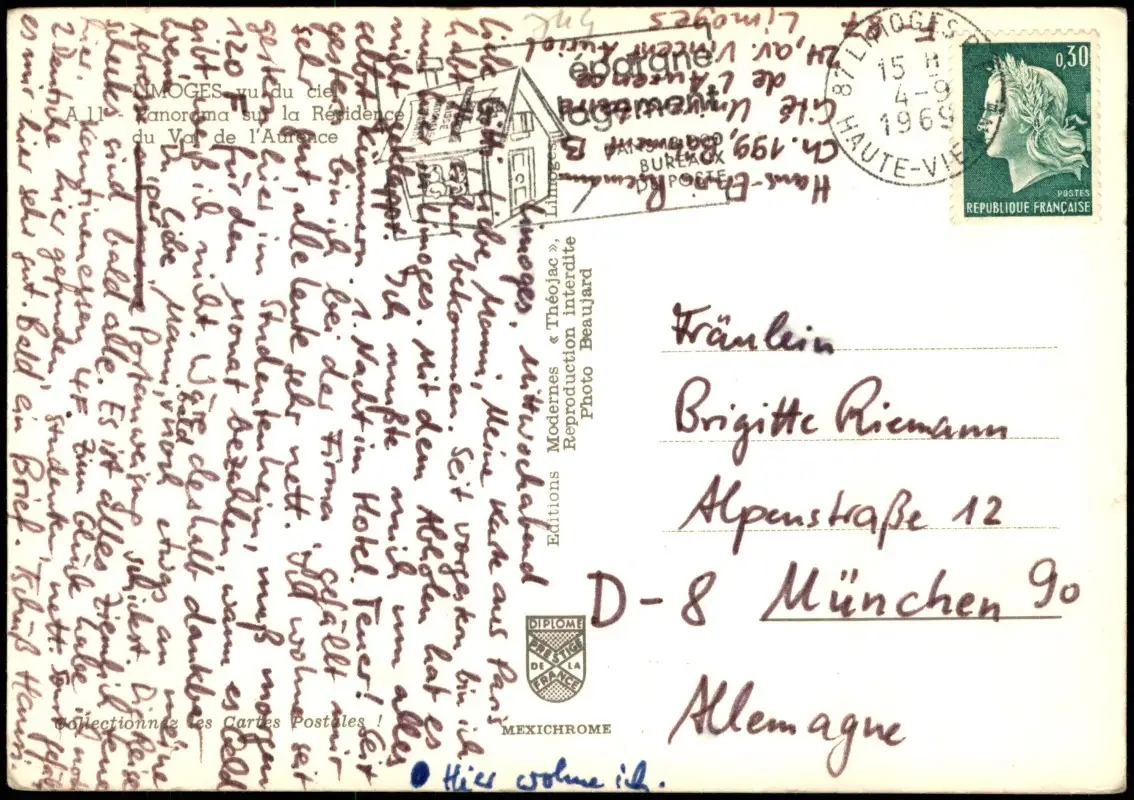 LIMOGES vu du ciel
A 11 Panorama sur la Résidence
du Val de l'Aurence
Limoges, Mittwochabend
Liebe Gitti, liebe Mami, Meine Karte aus Paris
habt Ihr bekommen. Seit vorgestern bin ich
nun in Limoges. Mit dem Abholen hat es
nicht geklappt. Ich mußte mich um alles
selbst kümmern. 1. Nacht im Hotel. Teuer! Seit
gestern bin ich bei der Firma, gefällt mir
gut, alle Leute sehr nett. Ich wohne seit
gestern hier im Studentenheim, muß morgen
120 F für den Monat bezahlen, wann es Geld
gibt weiß ich nicht. Wäre deshalb dankbar
wenn Du, liebe Mami, bald noch etwas an meine
Adresse hier per Postanweisung schickst. Die Reise
schecks sind bald alle. Es ist alles ziemlich teuer
hier, Kantinenessen 4F. Zum Glück habe ich noch
2 Deutsche hier gefunden, Studenten, nett. Sonst gefällt
es mir hier sehr gut. Bald ein Brief. Tschüß Hansi.
Collectionnez les Cartes Postales !
Hier wohne ich.
Editions Modernes « Théojac »,
Limoges
Reproduction interdite
Photo Beaujard
DIPLOME
PRESTIGE
DE LA
FRANCE
MEXICHROME
Hans-Riemann
Ch. 199, Bâtiment B
Cité Universitaire
de l'Aurence
24, av. Vincent Auriol
F 87 Limoges
744
épargne
logement
BUREAUX
DE POSTE
87 LIMOGES
15 H
4-9
1969
HAUTE-VIENNE
0,30
POSTES
REPUBLIQUE FRANÇAISE
Fräulein
Brigitte Riemann
Alpenstraße 12
D-8 München 90
Allemagne